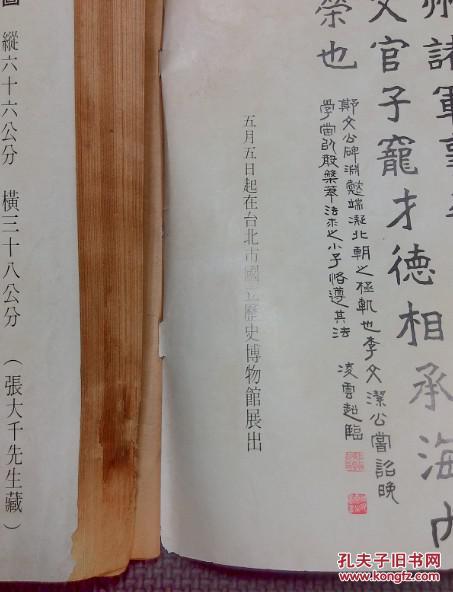 州諸軍事
文官子寵才德相承海內
榮也
鄭文公碑淵懿端凝北朝之極軌也李文潔公嘗詔晚
學當師取篆草法求之小子恪遵其法 凌雲超臨
五月五日起在台北市國立歷史博物館展出
圖 縱六十六公分 橫三十八公分 (張大千先生藏)
孔夫子旧书网
kongfz.com